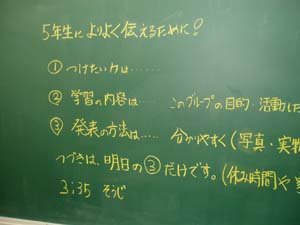 5年生によりよく伝えるために!
①つけたい力は……
②学習の内容は…… このグループの目的・活動した
③発表の方法は…… 分かりやすく(写真・実物
つづきは、明日の③だけです。(休み時間や
3:35 そうじ